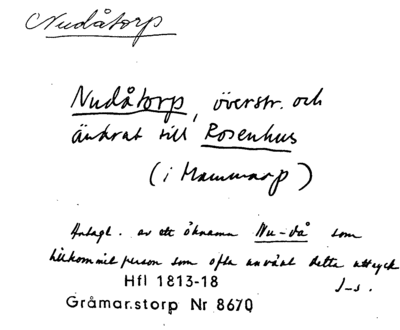 Nudåtorp
Nudåtorp, överstr. och
ändrat till Rosenhus
(i Mammarp)
Antagl. av ett öknamn Nu-då som
tillkommit person som ofta använt detta uttryck
Hfl 1813-18 J-s.
Gråmar.storp Nr 8670